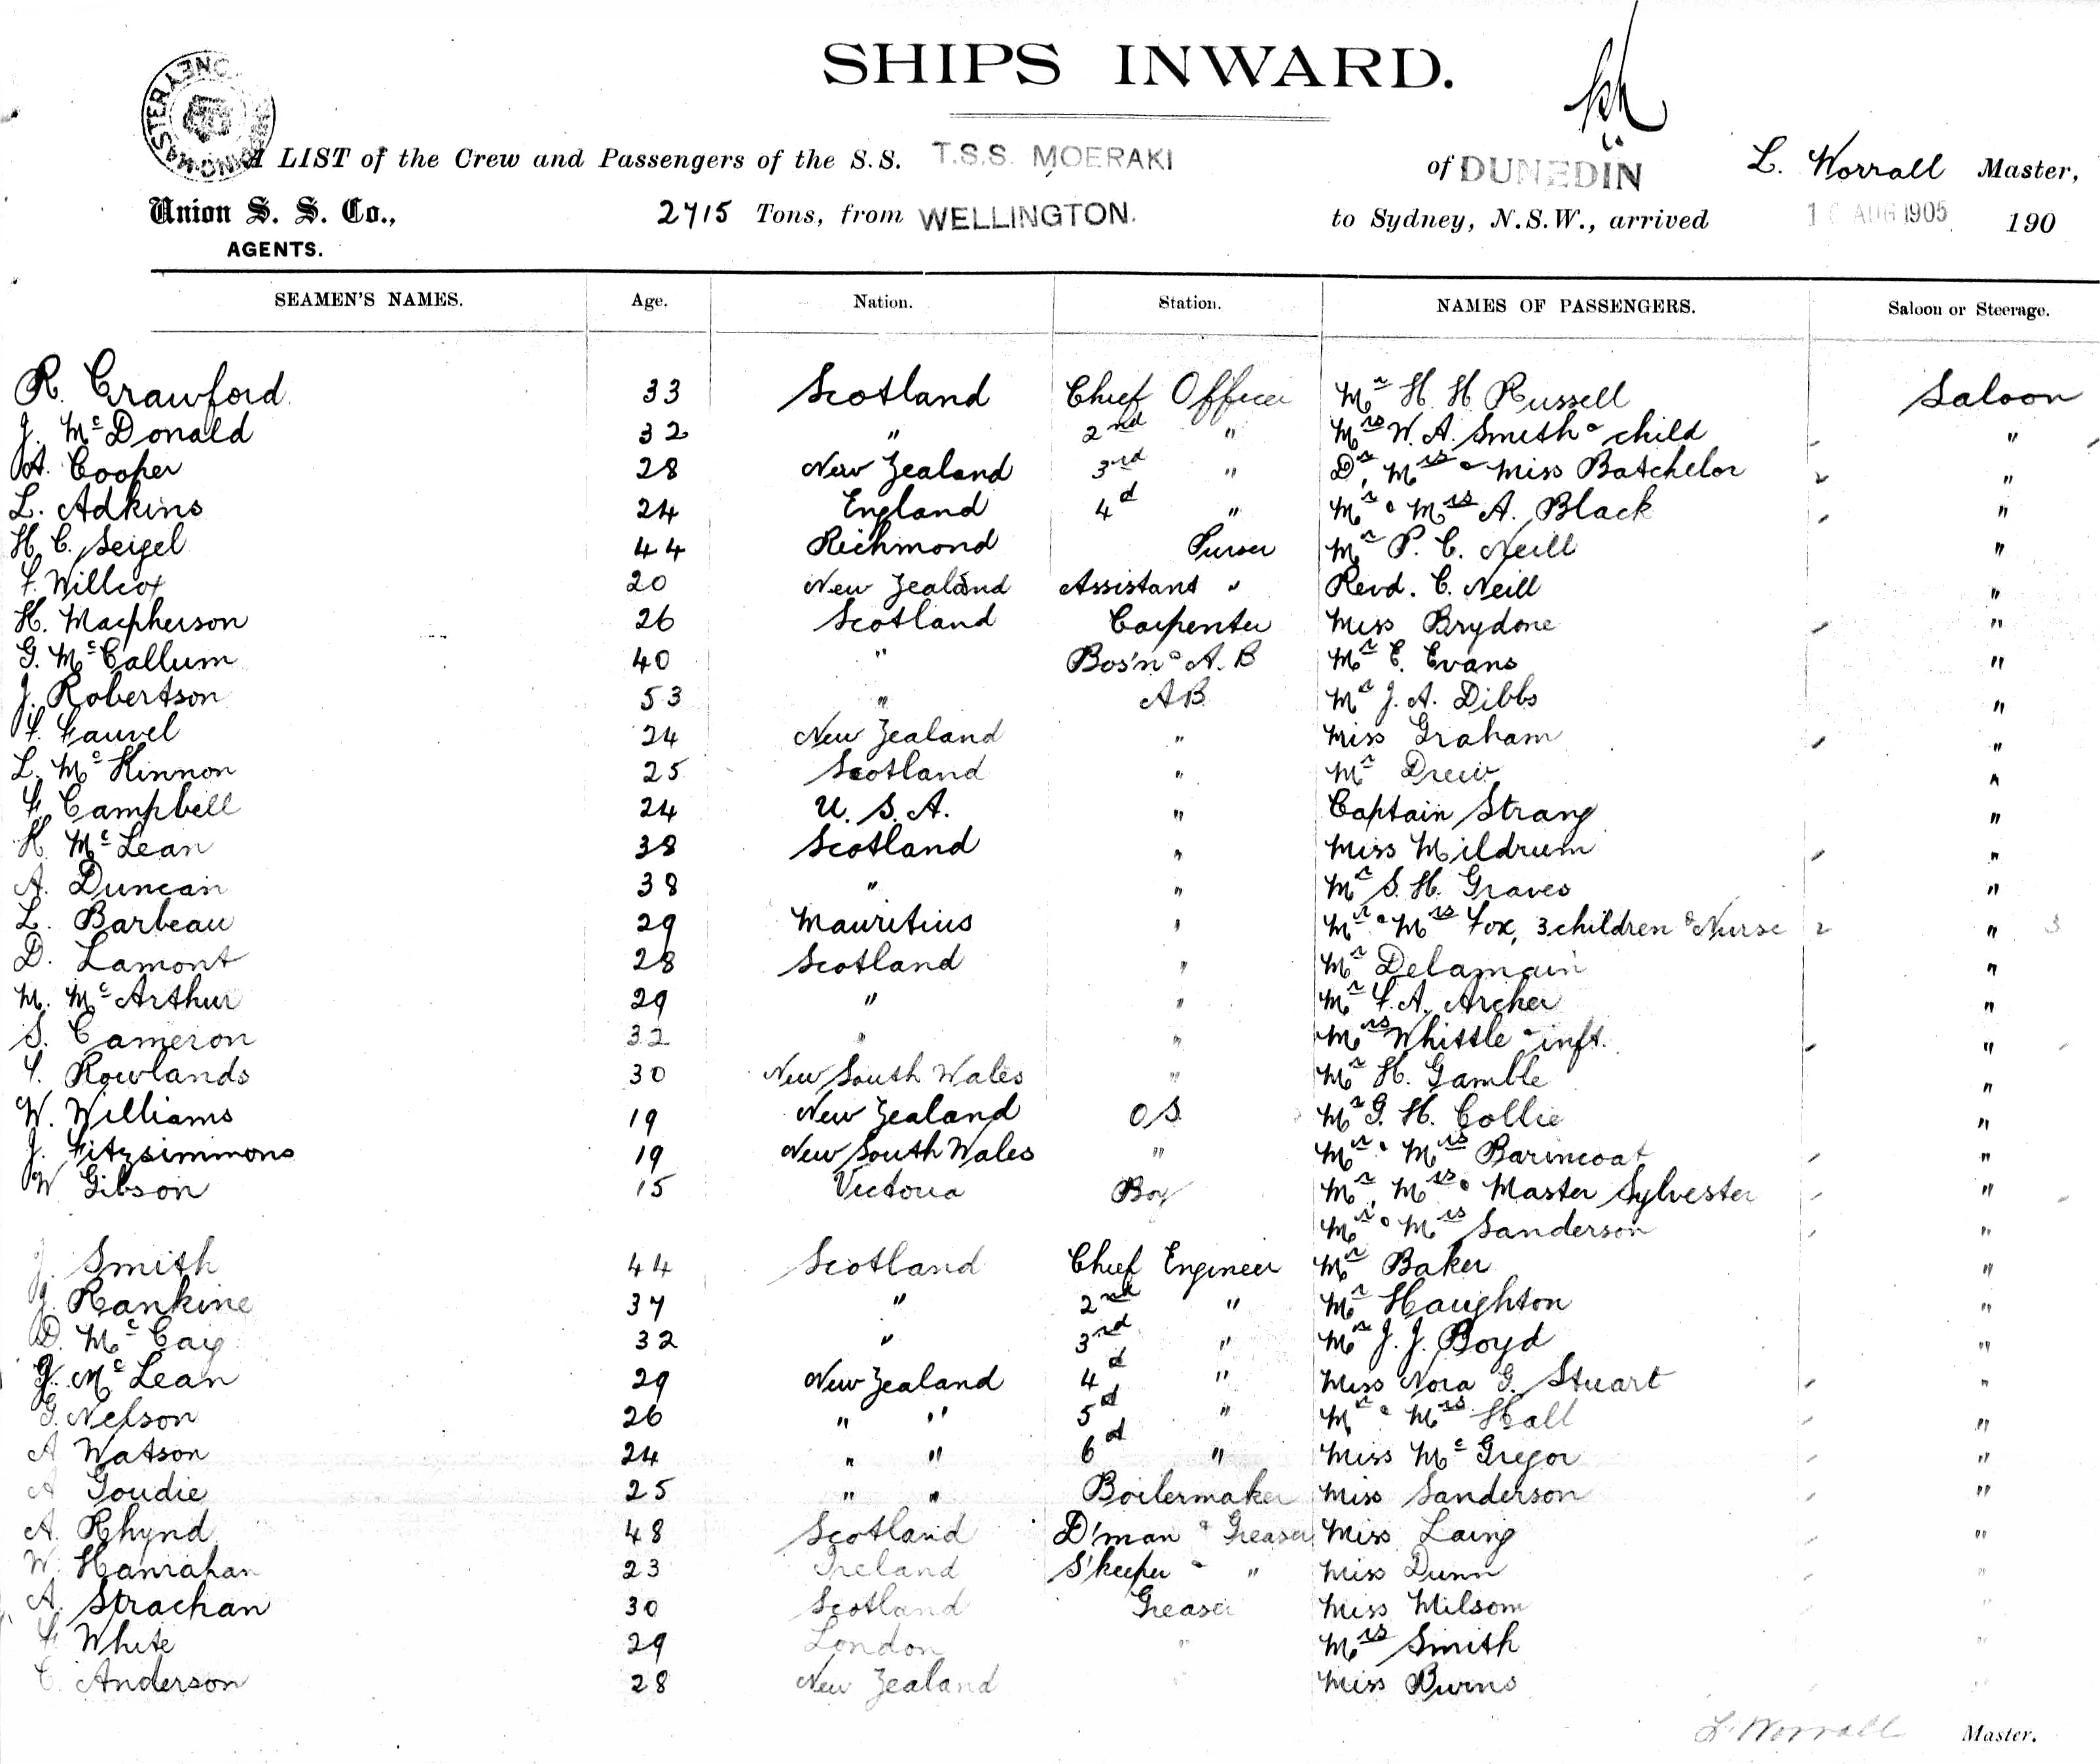 SHIPS INWARD.
A LIST of the Crew and Passengers of the S.S. T.S.S. MOERAKI of DUNEDIN L. Worrall Master,
Union S. S. Co., 2715 Tons, from WELLINGTON. to Sydney, N.S.W., arrived AUG 1905 190
AGENTS.
SEAMEN'S NAMES. Age. Nation. Station. NAMES OF PASSENGERS. Saloon or Steerage.
R. Crawford 33 Scotland Chief Officer Mr H. H Russell Saloon
J. McDonald 32 " 2nd " Mrs W. A. Smith & child "
A. Cooper 28 New Zealand 3rd " Dr, Mrs & Miss Batchelor "
L. Adkins 24 England 4d " Mr & Mrs A. Black "
H. C. Seigel 44 Richmond Purser Mr P. C. Neill "
F. Willcox 20 New Zealand Assistant " Revd. C. Neill "
H. Macpherson 26 Scotland Carpenter Miss Brydone "
G. McCallum 40 " Bos'n & A.B Mr C. Evans "
J. Robertson 53 " AB Mr J. A. Dibbs "
F. Fauvel 24 New Zealand " Miss Graham "
L. McKinnon 25 Scotland " Mr Drew "
F. Campbell 24 U. S. A. " Captain Strang "
K McLean 38 Scotland " Miss Mildrum "
A. Duncan 38 " " Mr S. H. Graves "
L. Barbeau 29 Mauritius " Mr & Mrs Fox, 3 children & Nurse " 3
D. Lamont 28 Scotland " Mr Delamain "
M. McArthur 29 " " Mr F. A. Archer "
S. Cameron 32 " " Mrs Whittle & inft. "
F. Rowlands 30 New South Wales " Mr H. Gamble "
W. Williams 19 New Zealand O S. Mr G. H. Collie "
J. Fitzsimmons 19 New South Wales " Mr & Mrs Barincoat "
W Gibson 15 Victoria Boy Mr, Mrs & Master Sylvester "
Mr & Mrs Sanderson "
J. Smith 44 Scotland Chief Engineer Mr Baker "
J. Rankine 37 " 2nd " Mr Haughton "
D. McCay 32 " 3rd " Mr J. J. Boyd "
G. McLean 29 New Zealand 4d " Miss Nora G. Stuart "
G. Nelson 26 " " 5d " Mr & Mrs Hall "
A Watson 24 " " 6d " Miss McGregor "
A Goudie 25 " " Boilermaker Miss Sanderson "
A. Rhynd 48 Scotland D'man & Greaser Miss Laing "
W. Hanrahan 23 Ireland S'keeper & " Miss Dunn "
A. Strachan 30 Scotland Greaser Miss Milsom "
F White 29 London " Mrs Smith "
C. Anderson 28 New Zealand " Miss Burns "
L. Worrall Master.